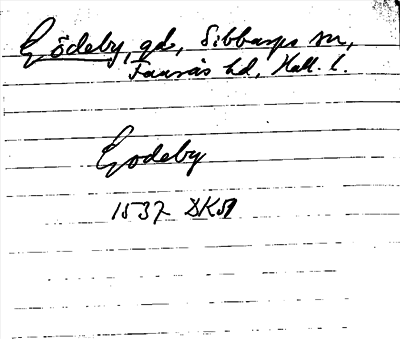 Gödeby, gd, Sibbarps sn,
Faurås hd, Hall. l.
Godeby
1537 DK51